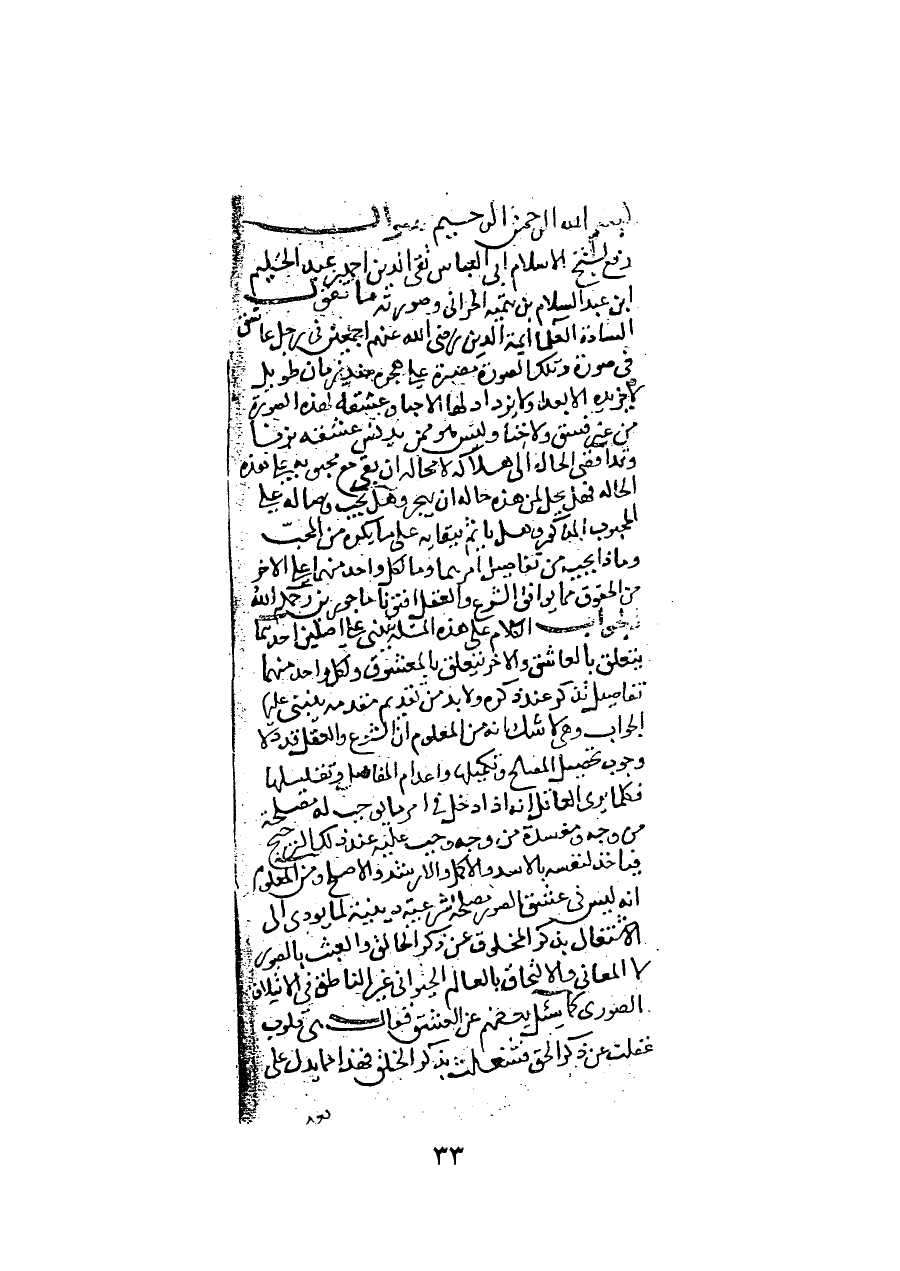 بسم الله الرحمن الرحيم سوال
رفع لشيخ الاسلام ابي العباس تقي الدين احمد بن عبد الحليم
ابن عبد السلام بن تيمية الحراني وصورته ما تقول
السادة العلما ايمة الدين رضي الله عنهم اجمعين في رجل عاشق
في صورة وتلك الصورة مصرة على هجره منذ زمان طويل
لا تزيده الا بعدا ولا يزداد لها الا حبا وعشقه لهذه الصورة
من غير فسق ولا خنا وليس هو ممن يدنس عشقه بزنا
وقد افضى الحال الى هلاكه لا محاله ان بقي مع محبوبه على هذه
الحاله فهل يحل لمن هذه حاله ان يهجر وهل يجب وصاله على
المحبوب المذكور وهل ياثم ببقايه على ما يكون من المحب
وماذا يجب من تفاصيل امرهما وما لكل واحد منهما على الاخر
من الحقوق مما يوافق الشرع والعقل افتونا ماجورين رحمكم الله
الجواب الكلام على هذه المسئلة ينبني على اصلين احدهما
يتعلق بالعاشق والاخر يتعلق بالمعشوق ولكل واحد منهما
تفاصيل تذكر عند ذكره ولا بد من تقديم مقدمه ينبني عليها
الجواب وهي لا شك انه من المعلوم ان الشرع والعقل قد دلا
وجوب تحصيل المصالح وتكميلها واعدام المفاسد وتقليلها
فكلما يرى العاقل انه اذا دخل في امر ما يوجب له مصلحة
من وجه ومفسدة من وجه وجب عليه عند ذلك الترجيح
فياخذ لنفسه بالاسد والاكمل والارشد والاصلح ومن المعلوم
انه ليس في عشق الصور مصلحة شرعية دينية لما يودي الى
الاشتغال بذكر المخلوق عن ذكر الخالق والعبث بالصور
لا المعاني والالتحاق بالعالم الحيواني غير الناطق في الائتلاف
الصوري كما سئل بعضهم عن العشق فقال هي قلوب
غفلت عن ذكر الحق فشغلت بذكر الخلق فهذا مما يدل على
٣٣